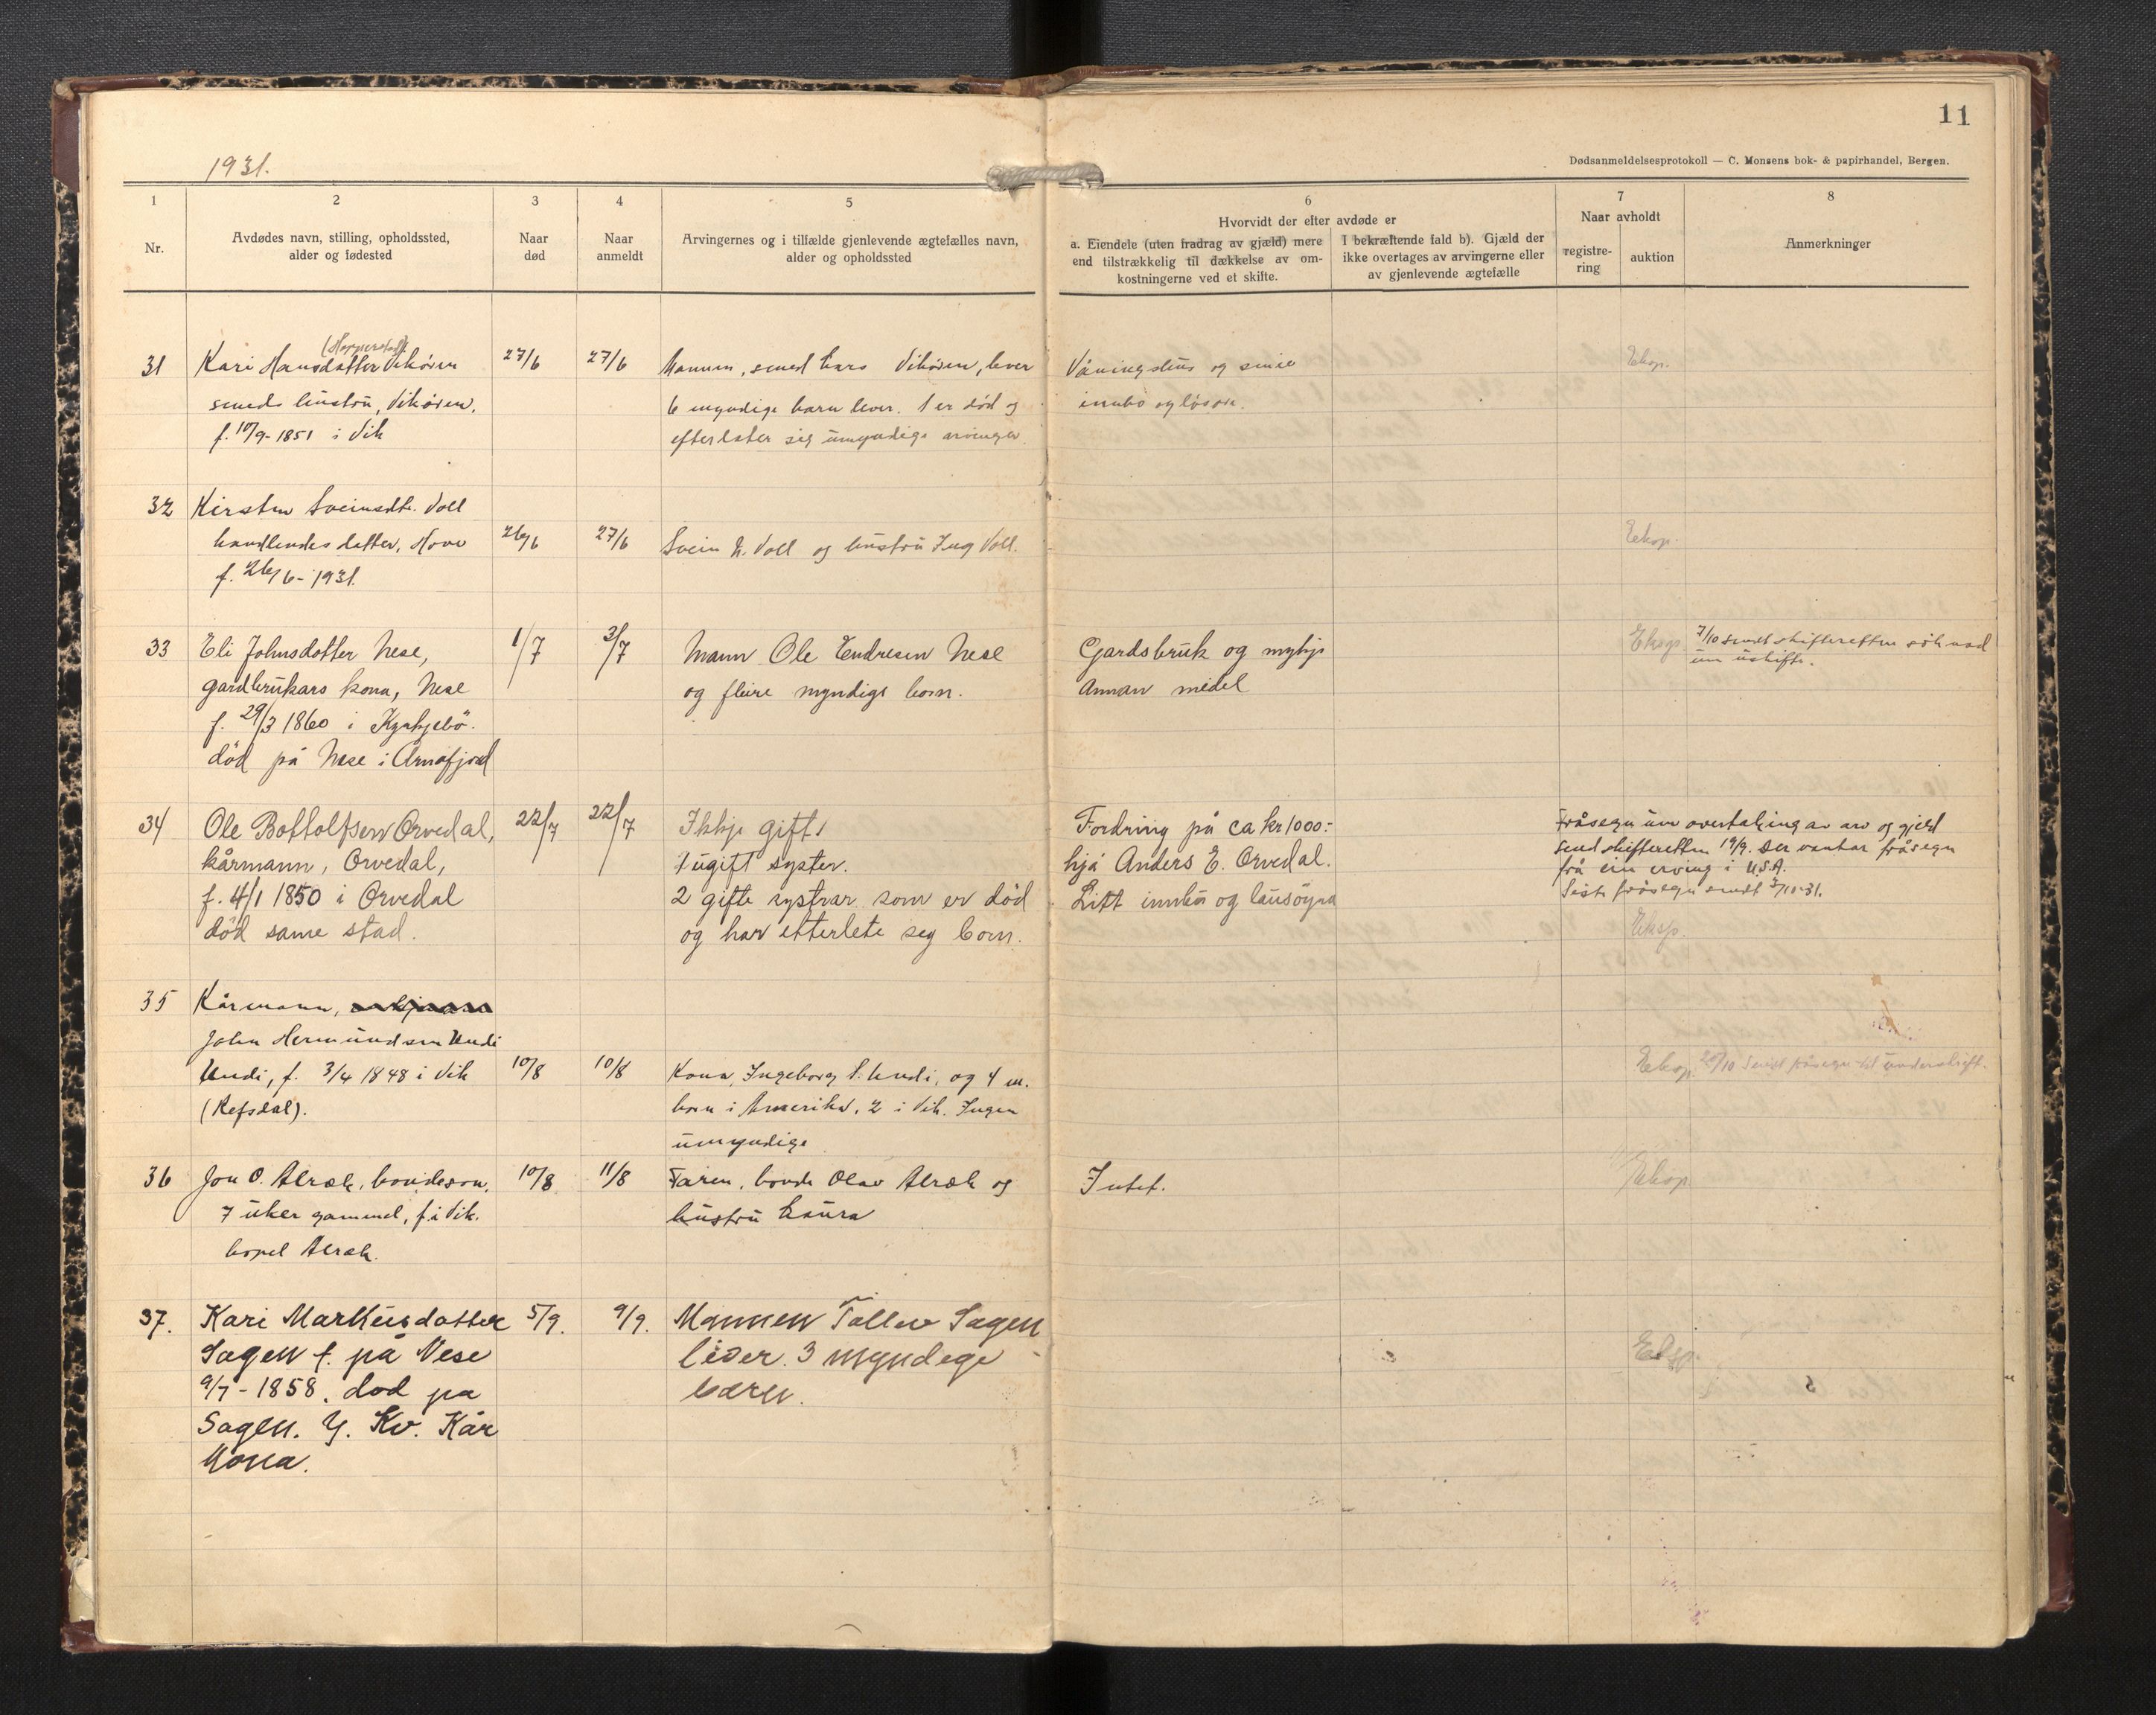 11
Dødsanmeldelsesprotokoll — C. Monsens bok- & papirhandel, Bergen.
1931.
1
Nr.
2
Avdødes navn, stilling, opholdssted,
alder og fødested
3
Naar
død
4
Naar
anmeldt
5
Arvingernes og i tilfælde gjenlevende ægtefælles navn,
alder og opholdssted
6
Hvorvidt der efter avdøde er
a. Eiendele (uten fradrag av gjæld) mere
end tilstrækkelig til dækkelse av om-
kostningerne ved et skifte.
I bekræftende fald b). Gjæld der
ikke overtages av arvingerne eller
av gjenlevende ægtefælle
7
Naar avholdt
registre-
ring
auktion
8
Anmerkninger
31
(Hopperstad)
Kari Hansdatter Vikøren
smeds hustru, Vikøren.
f. 10/9-1851 i Vik
27/6
27/6
Mannen, smed Lars Vikøren, lever
6 myndige barn lever. 1 er död og
efterlater sig umyndige arvinger.
Våningshus og smie
innbo og lösöre.
Eksp.
32
Kirsten Sveinsdtr. Voll
handlendes datter, Hove
f. 26/6-1931.
26/6
27/6
Svein N. Voll og hustru Ing Voll.
Eksp.
33
Eli Johnsdotter Nese,
gardbrukars kona, Nese
f. 29/3 1860 i Kyrkjebö.
död på Nese i Arnafjord
1/7
3/7
Mann Ole Endresen Nese
og fleire myndige born.
Gardsbruk og mykje
annan midel
Eksp.
7/10 sendt skifteretten söknad
um uskifte.
34
Ole Bottolfsen Orvedal,
kårmann, Orvedal,
f. 4/1 1850 i Orvedal
död same stad.
22/7
22/7
Ikkje gift.
1 ugift syster.
2 gifte systrar som er död
og har etterlete seg born.
Fordring på ca kr 1000:-
hjå Anders E. Orvedal.
Litt innbu og lausöyra
Fråsegn um overtaking av arv og gjeld
send skifteretten 19/9. Der vantar fråsegn
frå ein erving i U.S.A.
Siste fråsegn sendt 3/11-31.
Eksp.
35
Kårmann,
John Hermundsen Undi
Undi, f. 3/4 1848 i Vik
(Refsdal).
10/8
10/8
Kona, Ingeborg Undi, og 4 m.
born i Amerika, 2 i Vik. Ingen
umyndige
Eksp.
20/10 Sendt fråsegn til underskrift.
36
Jon O. Abrak, bondeson,
7 uker gammel, f. i Vik.
bopel Abrak.
10/8
11/8
Faren, bonde Olav Abrak og
hustru Laura
Intet.
Eksp
37.
Kari Markusdotter
Sagen f. på Nese
9/7-1858. död på
Sagen. G. Kv. Kår
Kona.
5/9.
9/9.
Mannen Tollev Sagen
lever. 3 myndege
born.
Eksp.